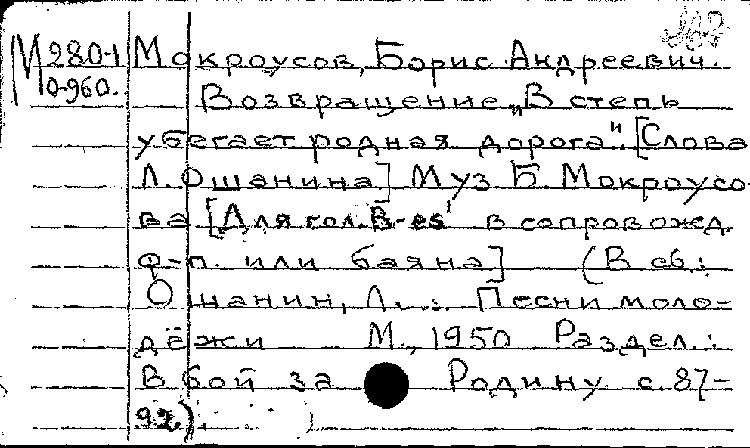 М 280-1 Мокроусов, Борис Андреевич.
0-960. Возвращение „В степь
убегает родная дорога". [Слова
Л. Ошанина] Муз Б Мокроусо-
ва [Для гол. B-es' в сопровожд.
ф-п. или баяна] (В сб.:
Ошанин, Л.: Песни моло-
дёжи М., 1950 Раздел.:
В бой за Родину с. 87-
92.).